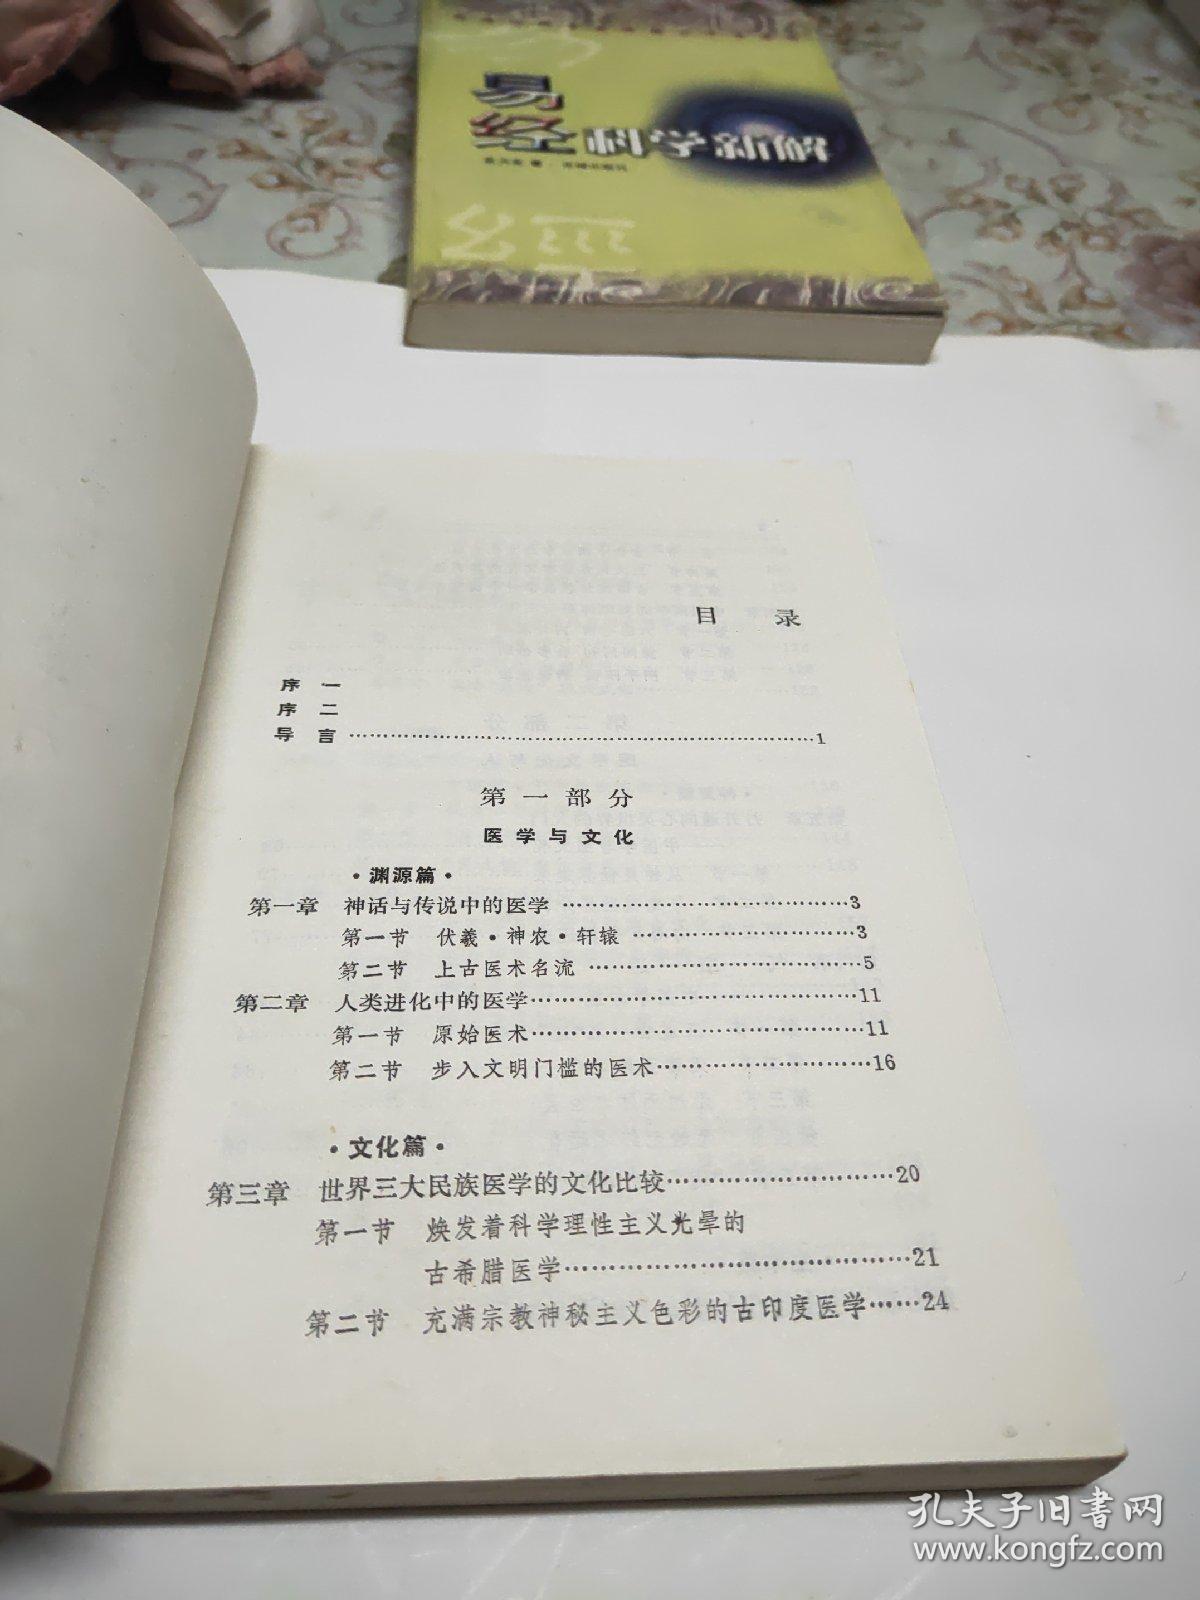 易经科学新解
目 录
序 一
序 二
导 言………………………………………………1
第一部分
医学与文化
·渊源篇·
第一章 神话与传说中的医学………………………………3
第一节 伏羲·神农·轩辕………………………3
第二节 上古医术名流………………………………5
第二章 人类进化中的医学………………………………11
第一节 原始医术………………………………11
第二节 步入文明门槛的医术………………………16
·文化篇·
第三章 世界三大民族医学的文化比较………………………20
第一节 焕发着科学理性主义光晕的
古希腊医学………………………………21
第二节 充满宗教神秘主义色彩的古印度医学……24
孔夫子旧书网
www.kongfz.com